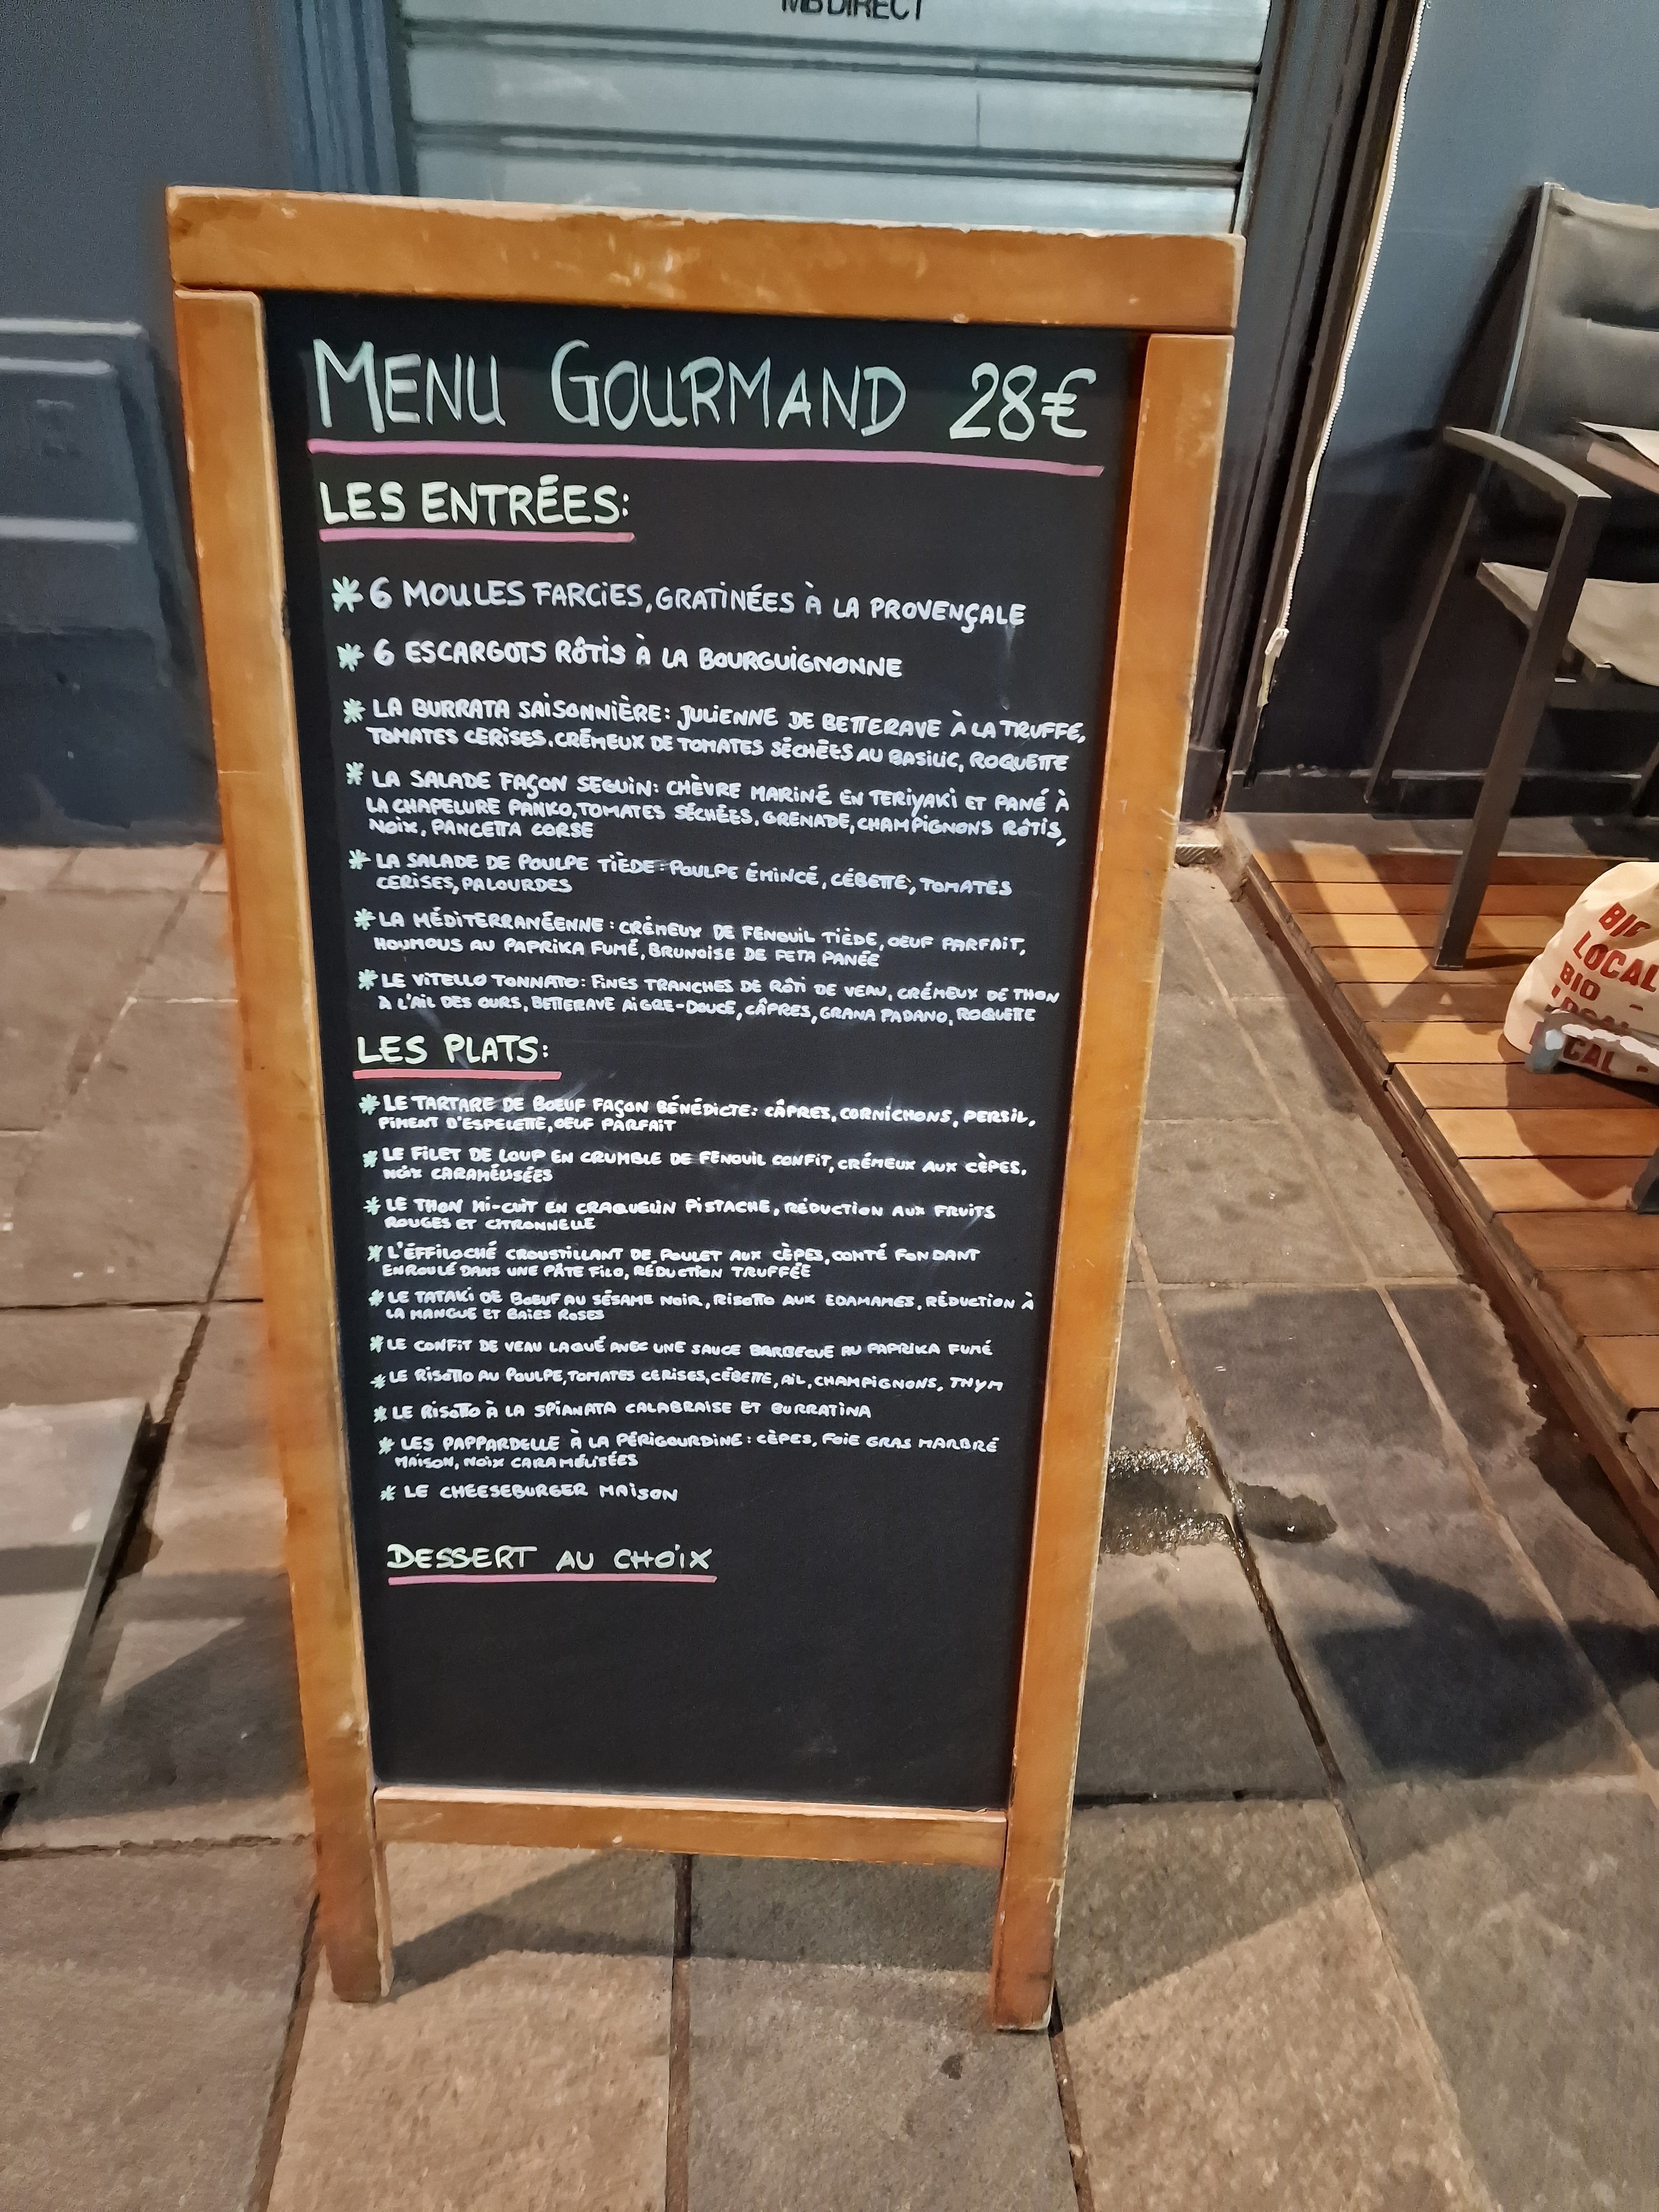 MB DIRECT
MENU GOURMAND 28€
LES ENTRÉES:
* 6 MOULES FARCIES, GRATINÉES À LA PROVENÇALE
* 6 ESCARGOTS RÔTIS À LA BOURGUIGNONNE
* LA BURRATA SAISONNIÈRE: JULIENNE DE BETTERAVE À LA TRUFFE,
TOMATES CERISES, CRÉMEUX DE TOMATES SÉCHÉES AU BASILIC, ROQUETTE
* LA SALADE FAÇON SEGUIN: CHÈVRE MARINÉ EN TERIYAKI ET PANÉ À
LA CHAPELURE PANKO, TOMATES SÉCHÉES, GRENADE, CHAMPIGNONS RÔTIS,
NOIX, PANCETTA CORSE
* LA SALADE DE POULPE TIÈDE: POULPE ÉMINCÉ, CÉBETTE, TOMATES
CERISES, PALOURDES
* LA MÉDITERRANÉENNE: CRÉMEUX DE FENOUIL TIÈDE, OEUF PARFAIT,
HOUMOUS AU PAPRIKA FUMÉ, BRUNOISE DE FETA PANÉE
* LE VITELLO TONNATO: FINES TRANCHES DE RÔTI DE VEAU, CRÉMEUX DE THON
À L'AIL DES OURS, BETTERAVE AIGRE-DOUCE, CÂPRES, GRANA PADANO, ROQUETTE
LES PLATS:
* LE TARTARE DE BOEUF FAÇON BÉNÉDICTE: CÂPRES, CORNICHONS, PERSIL,
PIMENT D'ESPELETTE, OEUF PARFAIT
* LE FILET DE LOUP EN CRUMBLE DE FENOUIL CONFIT, CRÉMEUX AUX CÈPES,
NOIX CARAMÉLISÉES
* LE THON MI-CUIT EN CRAQUELIN PISTACHE, RÉDUCTION AUX FRUITS
ROUGES ET CITRONNELLE
* L'ÉFFILOCHÉ CROUSTILLANT DE POULET AUX CÈPES, COMTÉ FONDANT
ENROULÉ DANS UNE PÂTE FILO, RÉDUCTION TRUFFÉE
* LE TATAKI DE BOEUF AU SÉSAME NOIR, RISOTTO AUX EDAMAMES, RÉDUCTION À
LA MANGUE ET BAIES ROSES
* LE CONFIT DE VEAU LAQUÉ AVEC UNE SAUCE BARBECUE AU PAPRIKA FUMÉ
* LE RISOTTO AU POULPE, TOMATES CERISES, CÉBETTE, AIL, CHAMPIGNONS, THYM
* LE RISOTTO À LA SPIANATA CALABRAISE ET BURRATINA
* LES PAPPARDELLE À LA PÉRIGOURDINE: CÈPES, FOIE GRAS MARBRÉ
MAISON, NOIX CARAMÉLISÉES
* LE CHEESEBURGER MAISON
DESSERT AU CHOIX
LOCAL
BIO -